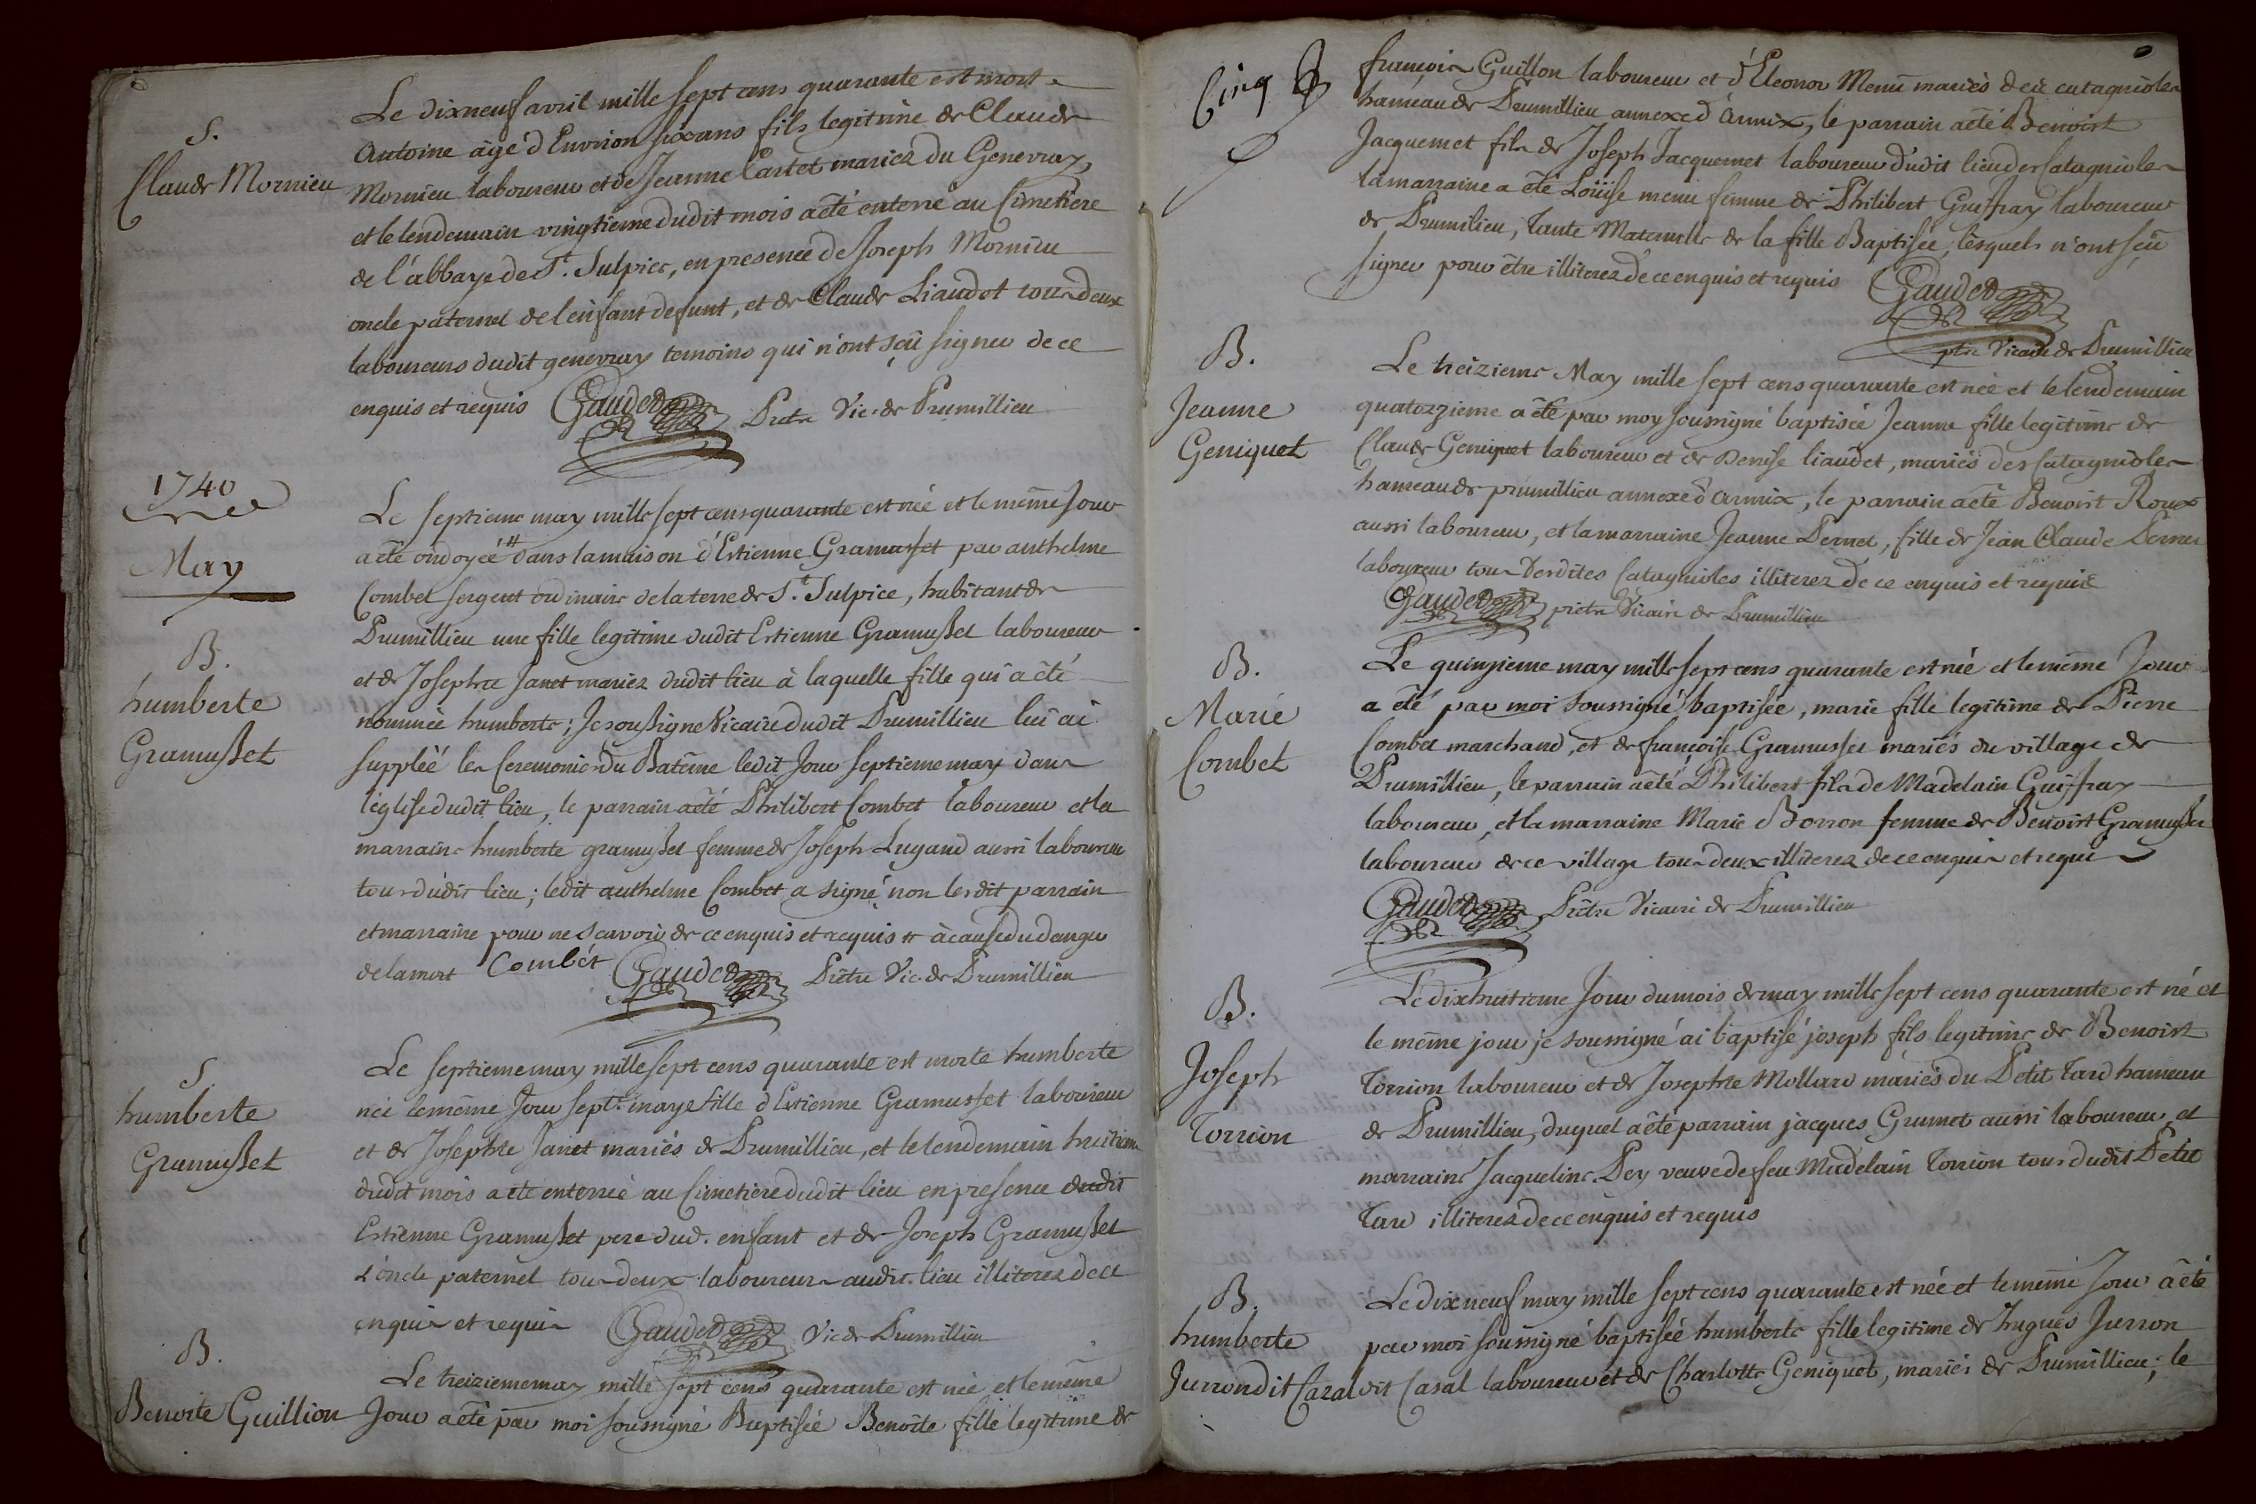 S.
Claude Mornieu
Le dixneuf avril mille sept cens quarante est mort
Antoine âgé d'Environ six ans fils legitime de Claude
Mornieu laboureur et de Jeanne Cartet mariez du Genevray,
et le lendemain vingtieme dudit mois a été enterré au Cimetiere
de l'abbaye de St. Sulpice, en presence de Joseph Mornieu
oncle paternel de l'enfant defunt, et de Claude Liaudet tous deux
laboureurs dudit genevray temoins qui n'ont sçû signer de ce
enquis et requis Gaudet Prêtre Vic. de Prumillieu
1740
May
B.
humberte
Gramusset
Le septieme may mille sept cens quarante est née et le même Jour
a été ondoyée # dans la maison d'Estienne Gramusset par anthelme
Combet sergent ordinaire de la terre de St. Sulpice, habitant de
Prumillieu une fille legitime dudit Estienne Gramusset laboureur
et de Josephte Janet mariez dudit lieu à laquelle fille qui a été
nommée humberte; Je soussigné Vicaire dudit Prumillieu lui ai
suppléé les Ceremonies du Batême ledit Jour septieme may dans
l'église dudit lieu, le parrain a été Philibert Combet laboureur et la
marraine humberte gramusset femme de Joseph Luyand aussi laboureur
tous dudit lieu; ledit anthelme Combet a signé non lesdit parrain
et marraine pour ne sçavoir de ce enquis et requis # à cause du danger
de la mort Combét Gaudet Prêtre Vic. de Prumillieu
S
humberte
Gramusset
Le septieme may mille sept cens quarante est morte humberte
née le même Jour sept.e may & fille d'Estienne Gramusset laboureur
et de Josephte Janet mariés de Prumillieu, et le lendemain huitieme
dudit mois a été enterrée au Cimetiere dudit lieu en presence dudit
Estienne Gramusset pere dud. enfant et de Joseph Gramusset
s'oncle paternel tous deux laboureurs audit lieu illiterez de ce
enquis et requis Gaudet Vic de Prumillieu
B.
Benoite Guillion
Le treizieme may mille sept cens quarante est née et le même
Jour a été par moi soussigné Baptisée Benoîte fille legitime de
Cinq
françois Guillon laboureur et d'Eleonor Menu mariés des catagnioles
hameau de Prumillieu annexe d'armix, le parrain a été Benoist
Jacquemet fils de Joseph Jacquemet laboureur dudit lieu des Catagnioles
la marraine a été Loüise menu femme de Philibert Guiffray laboureur
de Prumilieu, tante Maternelle de la fille Baptisée, lesquels n'ont sçû
signer pour être illiterez de ce enquis et requis Gaudet
ptre Vicaire de Prumillieu
B.
Jeanne
Geniquet
Le treizieme May mille sept cens quarante est née et le lendemain
quatorzieme a été par moy soussigné baptisée Jeanne fille legitime de
Claude Geniquet laboureur et de Denise liaudet, mariés des Catagnioles
hameau de prumillieu annexe d'armix, le parrain a été Benoist Roux
aussi laboureur, et la marraine Jeanne Pernet, fille de Jean Claude Pernet
laboureur tous desdites Catagnioles illiterez de ce enquis et requis
Gaudet prêtre Vicaire de Prumillieu
B.
Marie
Combet
Le quinzieme may mille sept cens quarante est née et le même Jour
a été par moi soussigné baptisée, marie fille legitime de Pierre
Combet marchand, et de françoise Gramusset mariés du village de
Prumillieu, le parrain a été Philibert fils de Madelain Guiffray
laboureur, et la marraine Marie Borron femme de Benoist Gramusset
laboureur de ce village tous deux illiterez de ce enquis et requis
Gaudet Prêtre Vicaire de Prumillieu
B.
Joseph
Torrion
Le dixhuitieme Jour du mois de may mille sept cens quarante est né et
le même jour je soussigné ai baptisé joseph fils legitime de Benoist
Torrion laboureur et de Josephte Mollard mariés du Petit Tard hameau
de Prumillieu, duquel a été parrain jacques Grumet aussi laboureur, et
marraine Jacqueline Pey veuve de feu Madelain Torrion tous dudit Petit
Tard illiterez de ce enquis et requis
B.
humberte
Jurron dit Cazal
Le dixneuf may mille sept cens quarante est née et le même Jour a été
par moi soussigné baptisée humberte fille legitime de hugues Jurron
dit Casal laboureur et de Charlotte Geniquet, mariés de Prumillieu; le